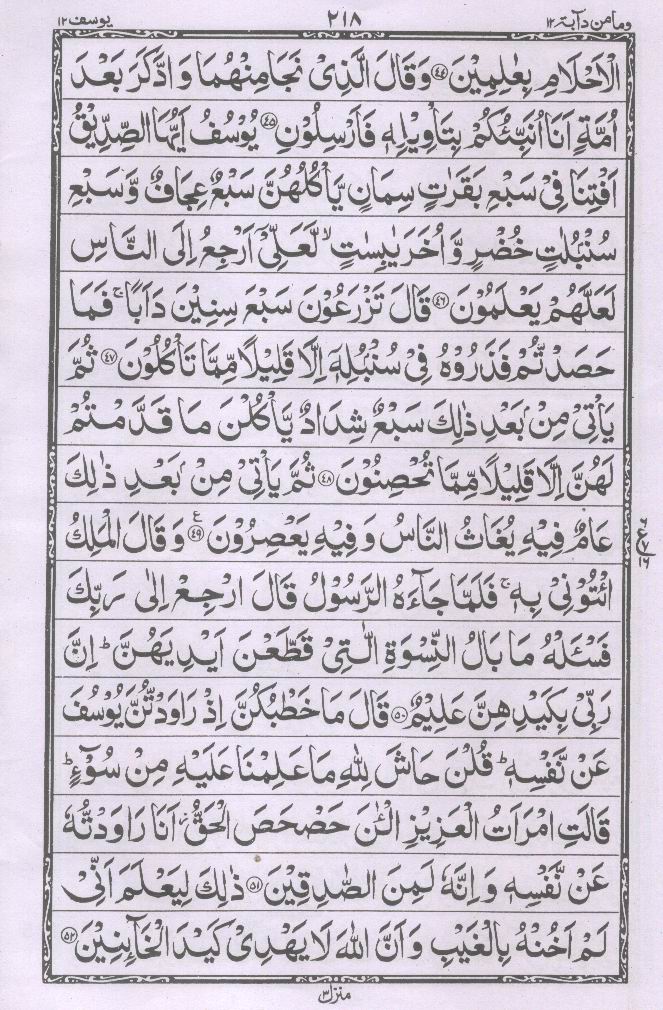 وما من دآبة ١٢ ٢١٨ يوسف ١٢
الْاَحْلَامِ بِعٰلِمِيْنَ ﴿۴۴﴾ وَقَالَ الَّذِىْ نَجَا مِنْهُمَا وَ ادَّكَرَ بَعْدَ
اُمَّةٍ اَنَا اُنَبِّئُكُمْ بِتَاْوِيْلِهٖ فَاَرْسِلُوْنِ ﴿۴۵﴾ يُوْسُفُ اَيُّهَا الصِّدِّيْقُ
اَفْتِنَا فِىْ سَبْعِ بَقَرٰتٍ سِمَانٍ يَّاْكُلُهُنَّ سَبْعٌ عِجَافٌ وَّ سَبْعِ
سُنْۢبُلٰتٍ خُضْرٍ وَّ اُخَرَ يٰبِسٰتٍ ۙ لَّعَلِّىْۤ اَرْجِعُ اِلَى النَّاسِ
لَعَلَّهُمْ يَعْلَمُوْنَ ﴿۴۶﴾ قَالَ تَزْرَعُوْنَ سَبْعَ سِنِيْنَ دَاَبًا ۚ فَمَا
حَصَدْتُّمْ فَذَرُوْهُ فِىْ سُنْۢبُلِهٖۤ اِلَّا قَلِيْلًا مِّمَّا تَاْكُلُوْنَ ﴿۴۷﴾ ثُمَّ
يَاْتِىْ مِنْۢ بَعْدِ ذٰلِكَ سَبْعٌ شِدَادٌ يَّاْكُلْنَ مَا قَدَّمْتُمْ
لَهُنَّ اِلَّا قَلِيْلًا مِّمَّا تُحْصِنُوْنَ ﴿۴۸﴾ ثُمَّ يَاْتِىْ مِنْۢ بَعْدِ ذٰلِكَ
عَامٌ فِيْهِ يُغَاثُ النَّاسُ وَ فِيْهِ يَعْصِرُوْنَ ﴿۴۹﴾ ع وَ قَالَ الْمَلِكُ
ائْتُوْنِىْ بِهٖ ۚ فَلَمَّا جَآءَهُ الرَّسُوْلُ قَالَ ارْجِعْ اِلٰى رَبِّكَ
فَسْـَٔلْهُ مَا بَالُ النِّسْوَةِ الّٰتِىْ قَطَّعْنَ اَيْدِيَهُنَّ ؕ اِنَّ
رَبِّىْ بِكَيْدِهِنَّ عَلِيْمٌ ﴿۵۰﴾ قَالَ مَا خَطْبُكُنَّ اِذْ رَاوَدْتُّنَّ يُوْسُفَ
عَنْ نَّفْسِهٖ ؕ قُلْنَ حَاشَ لِلّٰهِ مَا عَلِمْنَا عَلَيْهِ مِنْ سُوْٓءٍ ؕ
قَالَتِ امْرَاَتُ الْعَزِيْزِ الْـٰٔنَ حَصْحَصَ الْحَقُّ ز اَنَا رَاوَدْتُّهٗ
عَنْ نَّفْسِهٖ وَ اِنَّهٗ لَمِنَ الصّٰدِقِيْنَ ﴿۵۱﴾ ذٰلِكَ لِيَعْلَمَ اَنِّىْ
لَمْ اَخُنْهُ بِالْغَيْبِ وَ اَنَّ اللّٰهَ لَا يَهْدِىْ كَيْدَ الْخَآئِنِيْنَ ﴿۵۲﴾
منزل ٣